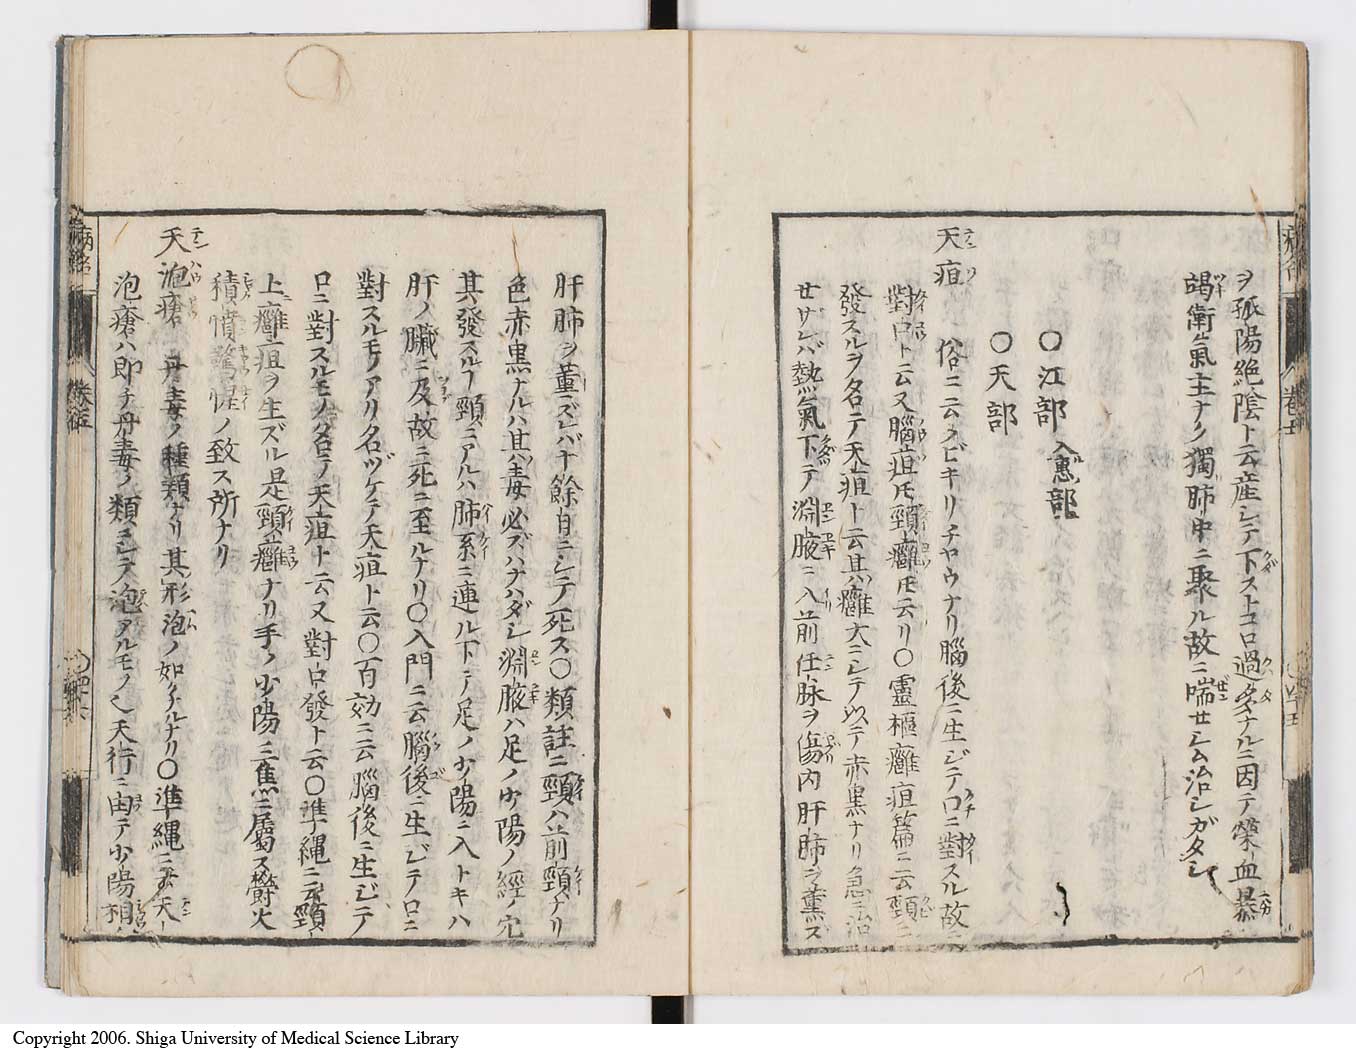 ヲ孤陽絶陰ト云産シテ下ストコロ過多ナルニ因テ榮血暴
竭衛氣主ナク獨肺中ニ聚ル故ニ喘セシム治シガタシ
〇江部 入惠部
〇天部
天疽 俗ニ云クビキリチヤウナリ腦後ニ生ジテ口ニ對スル故ニ
對口ト云又腦疽氏頸癰氏云リ〇靈樞癰疽篇ニ云頸ニ
發スルヲ名テ天疽ト云其癰大ニシテ以テ赤黒ナリ急ニ治
セザレバ熱氣下テ淵腋ニ入前任脉ヲ傷内肝肺ヲ薫ス
肝肺ヲ薫ズレバ十餘日ニシテ死ス〇類註ニ頸ハ前頸ナリ
色赤黒ナルハ其毒必ズハナハダシ淵腋ハ足ノ少陽ノ經ノ穴
其發スル頸ニアルハ肺系ニ連ル下テ足ノ少陽ニ入トキハ
肝ノ臟ニ及故ニ死ニ至ルナリ〇入門ニ云腦後ニ生ジテ口ニ
對スルモノアリ名ヅケテ天疽ト云〇百効ニ云腦後ニ生ジテ
口ニ對スルモノ名テ天疽ト云又對口發ト云〇準繩ニ云頸
上ニ癰疽ヲ生ズル是頸癰ナリ手ノ少陽三焦ニ屬ス欝火
積憤驚惺ノ致ス所ナリ
天泡瘡 丹毒ノ種類ナリ其形泡ノ如クナルナリ〇準繩ニ云天
泡瘡ハ即チ丹毒ノ類ニシテ泡アルモノ也天行ニ由テ少陽相
病名
卷之五
Copyright 2006. Shiga University of Medical Science Library